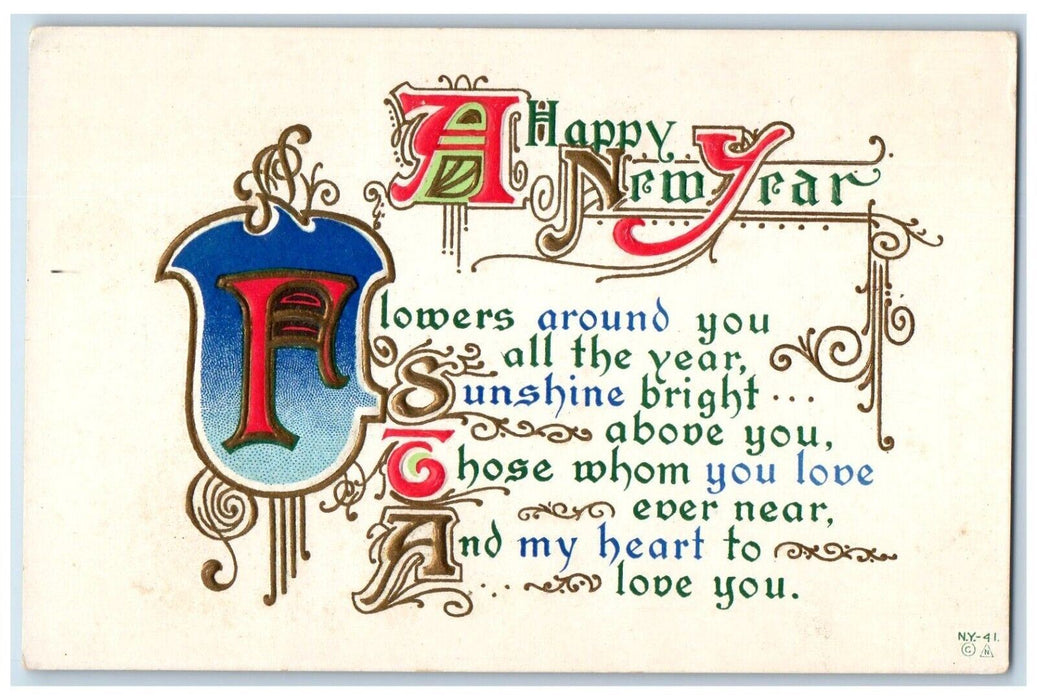 A Happy
New Year
Flowers around you
all the year,
Sunshine bright ...
above you,
Those whom you love
ever near,
And my heart to
... love you.
N.Y.-41.
© N